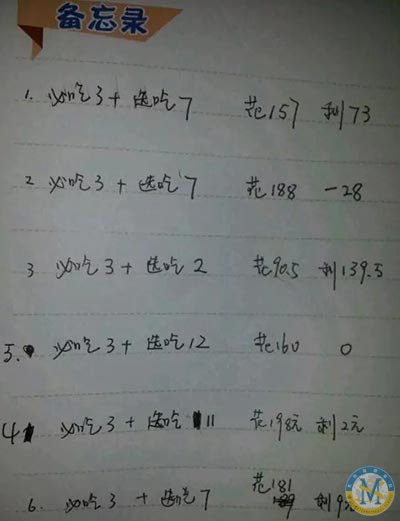 备忘录
1. 必吃3+选吃7 花157 利73
2 必吃3+选吃7 花188 -28
3 必吃3+选吃2 花90.5 利139.5
5. 必吃3+选吃12 花160 0
4 必吃3+选吃11 花198元 利2元
6. 必吃3+选吃7 花181 利9